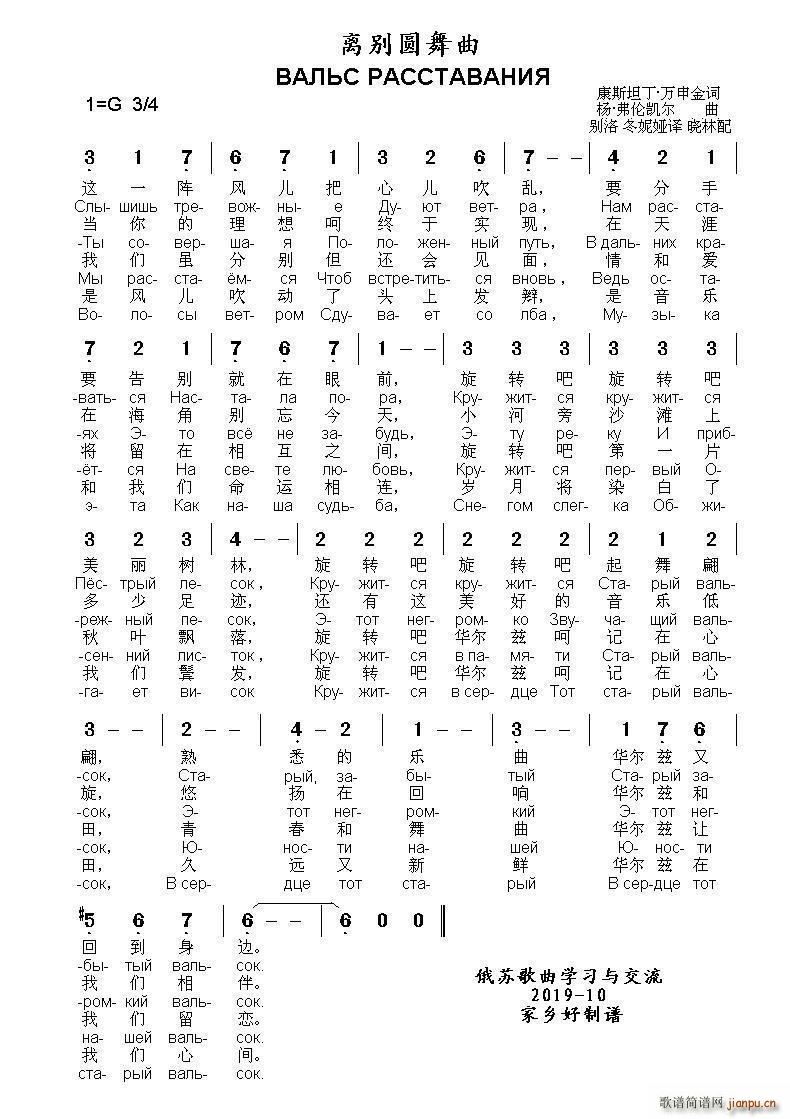 离别圆舞曲
ВАЛЬС РАССТАВАНИЯ
1=G 3/4
康斯坦丁·万申金词
杨·弗伦凯尔 曲
别洛 冬妮娅译 晓林配
3 1 7 | 6 7 1 | 3 2 6 | 7 - - | 4 2 1 |
这 一 阵 风 儿 把 心 儿 吹 乱, 要 分 手
Слы- шишь тре- вож- ны- е Ду- ют вет- ра , Нам рас- ста-
当 你 的 理 想 呵 终 于 实 现, 在 天 涯
-Ты со- вер- ша- я По- ло- жен- ный путь, В даль- них кра-
我 们 虽 分 别 但 还 会 见 面, 情 和 爱
Мы рас- ста- ём- ся Чтоб встре- тить- ся вновь , Ведь ос- та-
是 风 儿 吹 动 了 头 上 发 辫, 是 音 乐
Во- ло- сы вет- ром Сду- ва- ет со лба , Му- зы- ка
7 2 1 | 7 6 7 | 1 - - | 3 3 3 | 3 3 3 |
要 告 别 就 在 眼 前, 旋 转 吧 旋 转 吧
-вать- ся Нас- та- ла по- ра, Кру- жит- ся кру- жит- ся
在 海 角 别 忘 今 天, 小 河 旁 沙 滩 上
-ях Э- то всё не за- будь, Э- ту ре- ку И приб-
将 留 在 相 互 之 间, 旋 转 吧 第 一 片
-ёт- ся На све- те лю- бовь, Кру- жит- ся пер- вый О-
和 我 们 命 运 相 连, 岁 月 将 染 白 了
э- та Как на- ша судь- ба, Сне- гом слег- ка Об- жи-
3 2 3 | 4 - - | 2 2 2 | 2 2 2 | 2 1 2
美 丽 树 林, 旋 转 吧 旋 转 吧 起 舞 翩
Пёс- трый ле- сок , Кру- жит- ся кру- жит- ся Ста- рый валь-
多 少 足 迹, 还 有 这 美 好 的 音 乐 低
-реж- ный пе- сок, Э- тот нег- ром- ко Зву- ча- щий валь-
秋 叶 飘 落, 旋 转 吧 华 尔 兹 呵 记 在 心
-сен- ний лис- ток , Кру- жит- ся в па- мя- ти Ста- рый валь-
我 们 鬓 发, 旋 转 吧 华 尔 兹 呵 记 在 心
-га- ет ви- сок Кру- жит- ся в сер- дце Тот ста- рый валь-
3 - - | 2 - - | 4 - 2 | 1 - - | 3 - - | 1 7 6 |
翩, 熟 悉 的 乐 曲 华 尔 兹 又
-сок, Ста- рый, за- бы- тый Ста- рый за-
旋, 悠 扬 在 回 响 华 尔 兹 和
-сок, Э- тот нег- ром- кий Э- тот нег-
田, 青 春 和 舞 曲 华 尔 兹 让
-сок, Ю- нос- ти на- шей Ю- нос- ти
田, 久 远 又 新 鲜 华 尔 兹 在
-сок, В сер- дце тот ста- рый В сер-дце тот
#5 6 7 | 6 - - | 6 0 0 ‖
回 到 身 边。
-бы- тый валь- сок.
我 们 相 伴。
-ром- кий валь- сок.
我 们 留 恋。
на- шей валь- сок.
我 们 心 间。
ста- рый валь- сок.
俄苏歌曲学习与交流
2019-10
家乡好制谱
歌谱简谱网
jianpu.cn